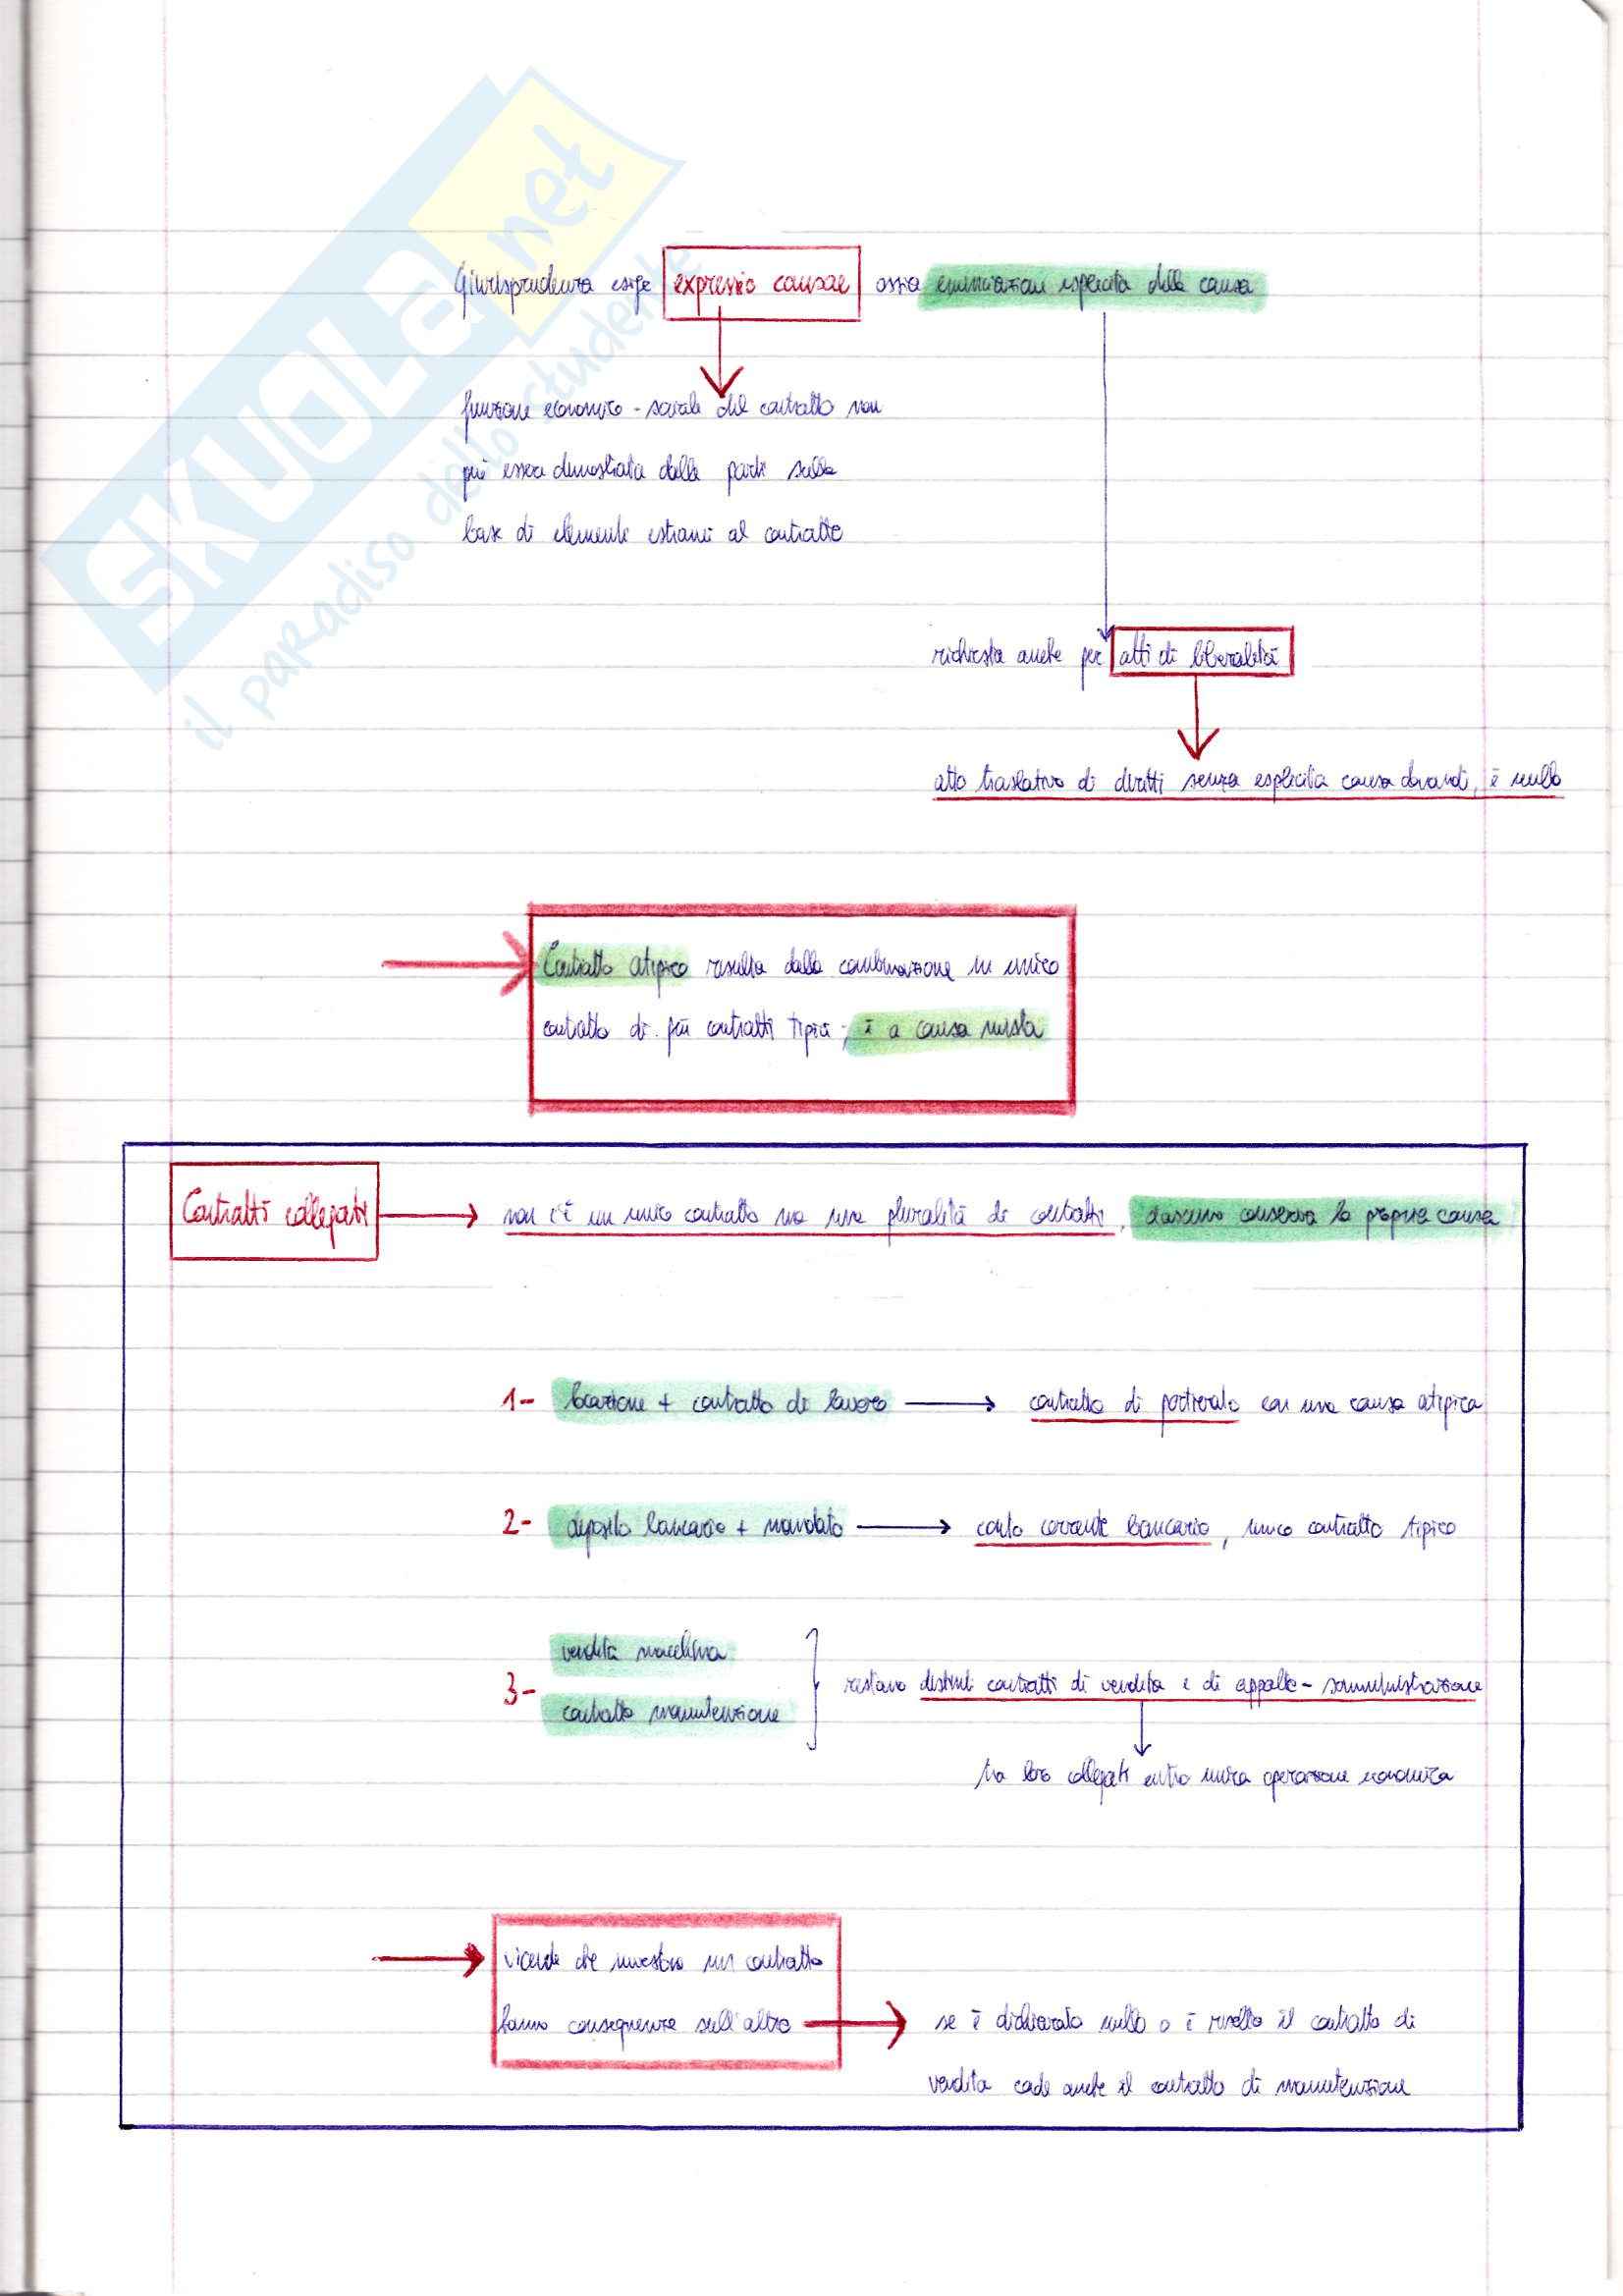 SKUOLA.net
il paradiso dello studente
Giurisprudenza esige expressio causae ossia enunciazione esplicita della causa
funzione economico - sociale del contratto non
può essere dimostrata dalle parti sulla
base di elementi estranei al contratto
richiesta anche per atti di liberalità
atto traslativo di diritti senza esplicita causa donandi, è nullo
Contratto atipico risulta dalla combinazione in unico
contratto di più contratti tipici; è a causa mista
Contratti collegati → non c'è un unico contratto ma una pluralità di contratti, ciascuno conserva la propria causa
1- locazione + contratto di lavoro → contratto di portierato con una causa atipica
2- deposito bancario + mandato → conto corrente bancario, unico contratto tipico
vendita macchina
3- restano distinti contratti di vendita e di appalto - somministrazione
contratto manutenzione
tra loro collegati entro unica operazione economica
vicende che investono un contratto
hanno conseguenze sull'altro → se è dichiarato nullo o è risolto il contratto di
vendita cade anche il contratto di manutenzione